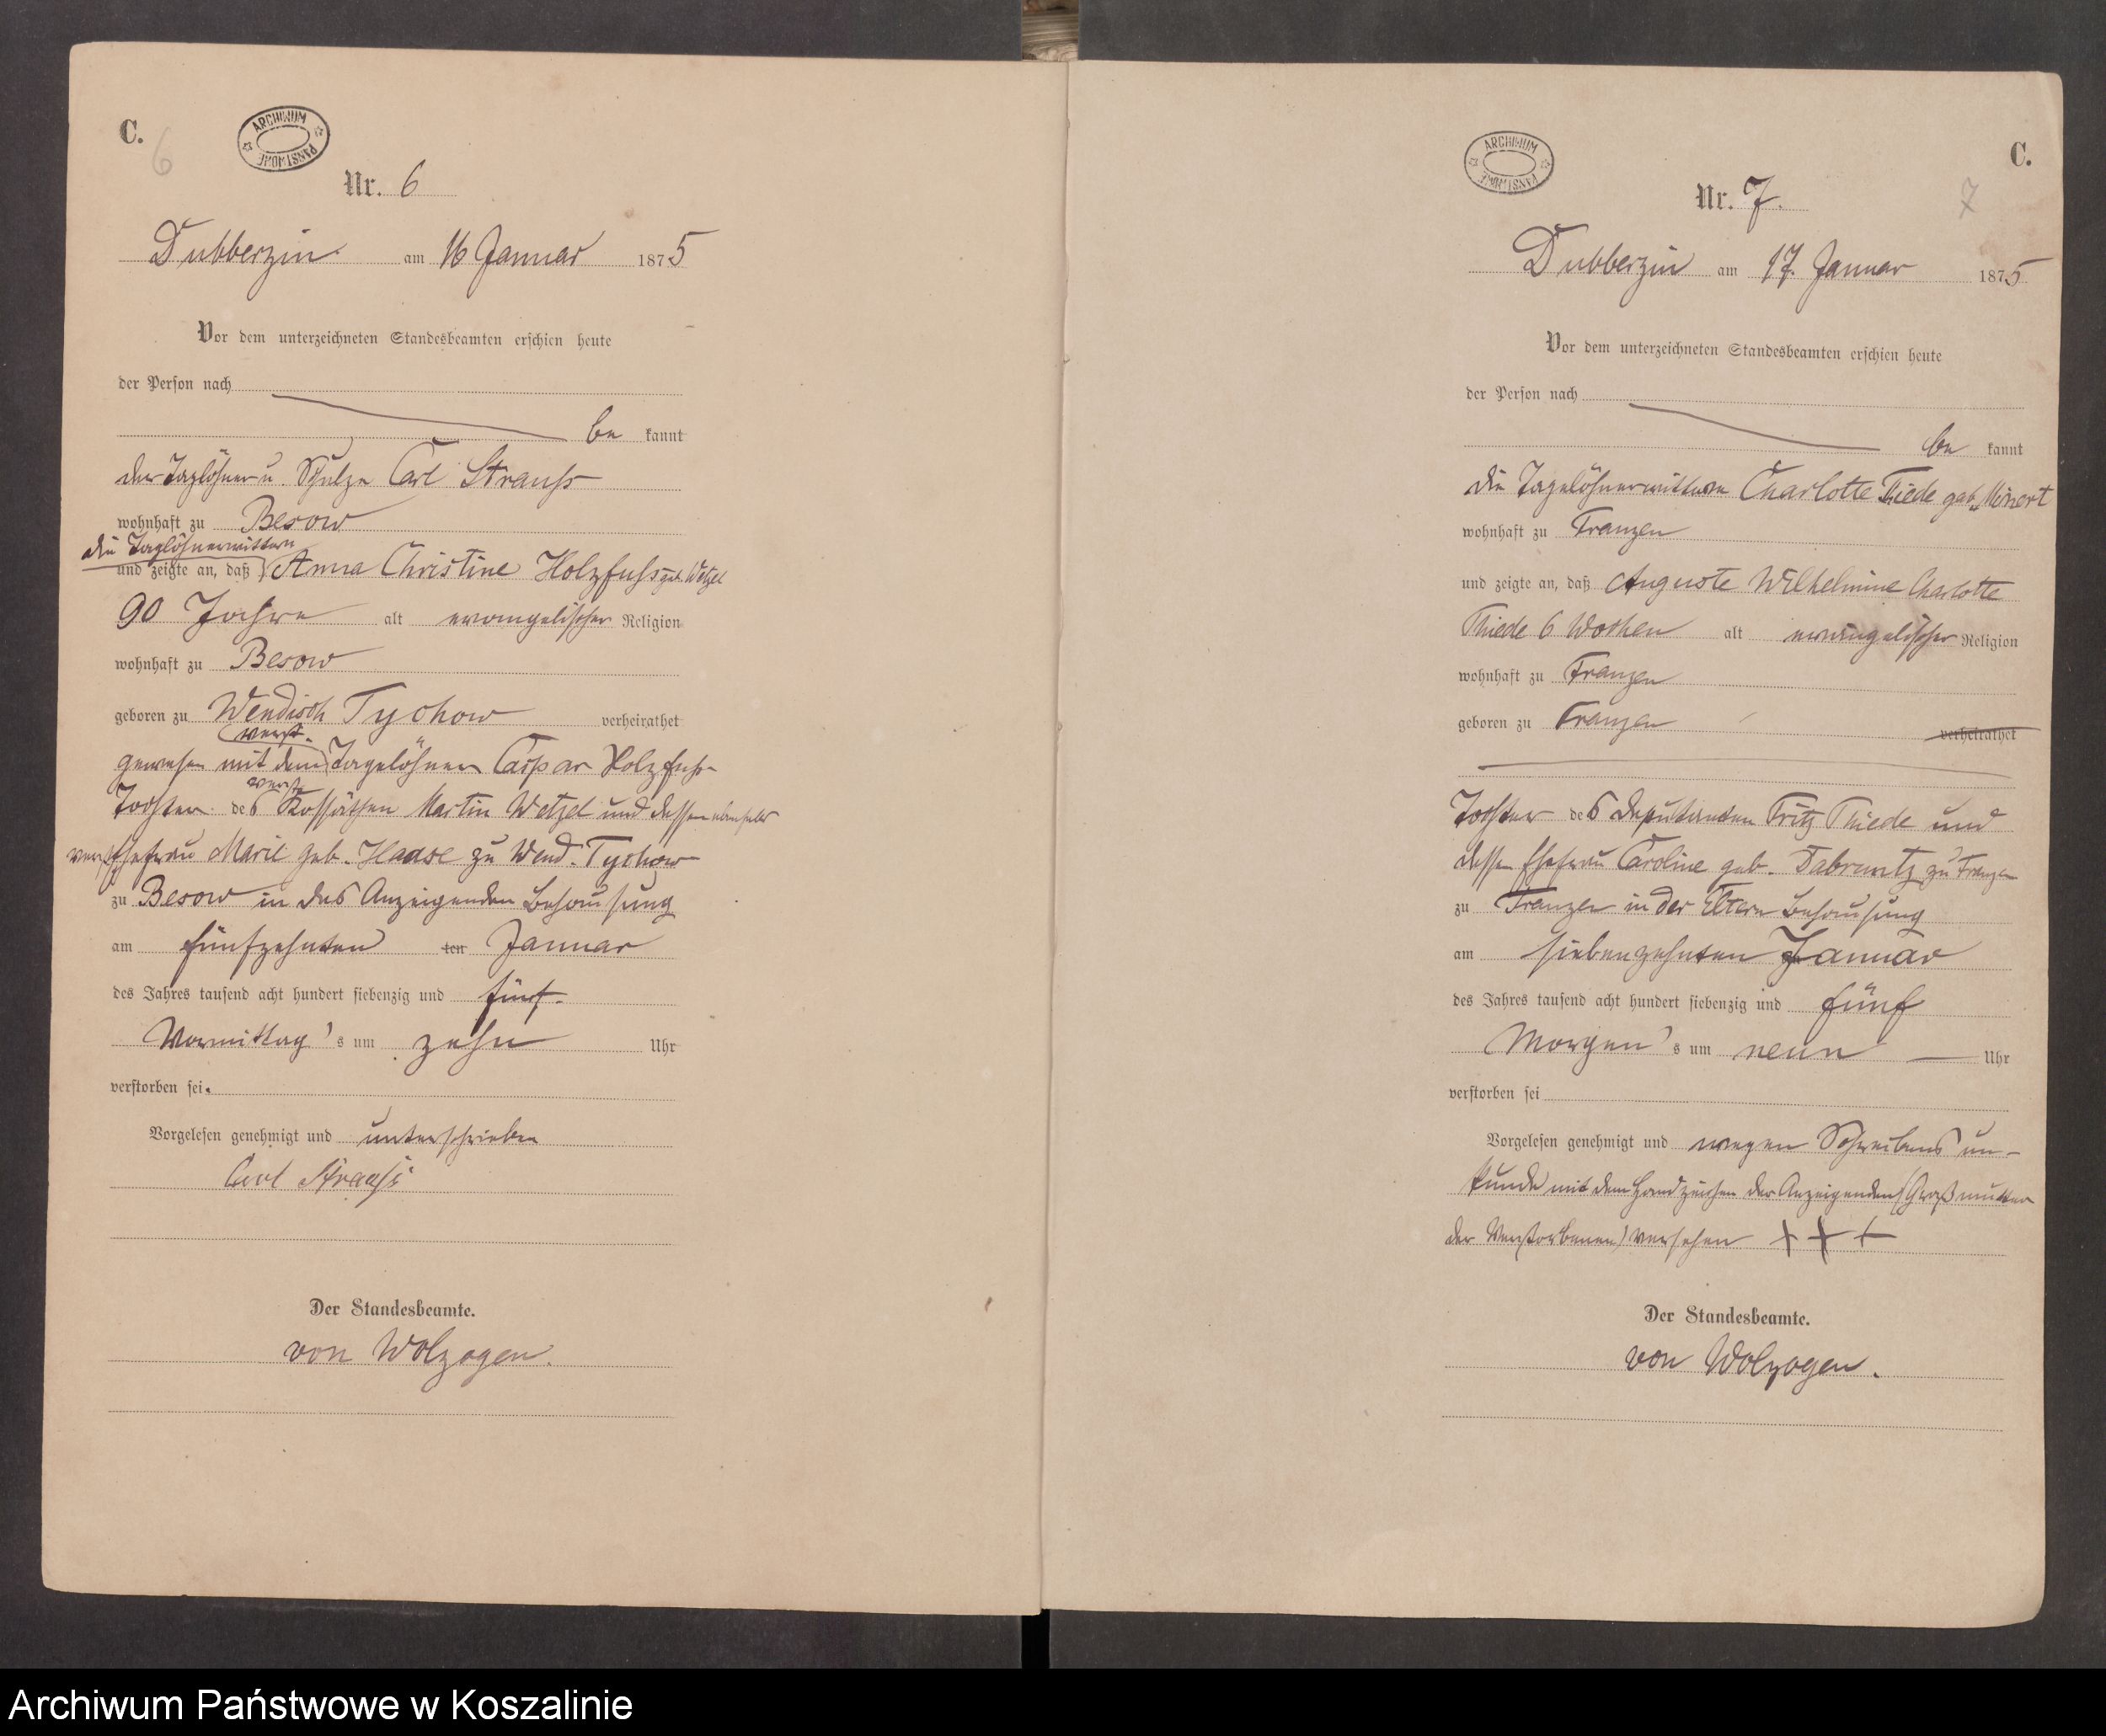 C.
6
ARCHIWUM PAŃSTWOWE
Nr. 6
Dubberzin am 16 Januar 1875
Vor dem unterzeichneten Standesbeamten erschien heute
der Person nach
be kannt
der Taglöhner u. Schulze Carl Strauss
wohnhaft zu Besow
die Taglöhnerwittwe
und zeigte an, daß Anna Christine Holzfuss geb. Wetzel
90 Jahre alt evangelischer Religion
wohnhaft zu Besow
geboren zu Wendisch Tychow verheirathet
verst.
gewesen mit dem Tagelöhner Caspar Holzfuss
verst.
Tochter des Kossäthen Martin Wetzel und dessen ebenfalls
verst. Ehefrau Marie geb. Haase zu Wend. Tychow
zu Besow in des Anzeigenden Behausung
am fünfzehnten ten Januar
des Jahres tausend acht hundert siebenzig und fünf.
Vormittag's um zehn Uhr
verstorben sei.
Vorgelesen genehmigt und unterschrieben
Carl Strauß
Der Standesbeamte.
von Wolzogen.
C.
7
ARCHIWUM PAŃSTWOWE
Nr. 7.
Dubberzin am 17. Januar 1875
Vor dem unterzeichneten Standesbeamten erschien heute
der Person nach
be kannt
die Tagelöhnerwittwe Charlotte Thiede geb.
wohnhaft zu Franzen
und zeigte an, daß Auguste Wilhelmine Charlotte
Thiede 6 Wochen alt evangelischer Religion
wohnhaft zu Franzen
geboren zu Franzen verheirathet
Tochter des Deputanten Fritz Thiede und
dessen Ehefrau Caroline geb. zu Franzen
zu Franzen in der Eltern Behausung
am siebenzehnten Januar
des Jahres tausend acht hundert siebenzig und fünf
Morgen's um neun Uhr
verstorben sei
Vorgelesen genehmigt und wegen Schreibens un-
kunde mit dem Handzeichen der Anzeigenden (Großmutter
der Verstorbenen) versehen + + +
Der Standesbeamte.
von Wolzogen.
Archiwum Państwowe w Koszalinie